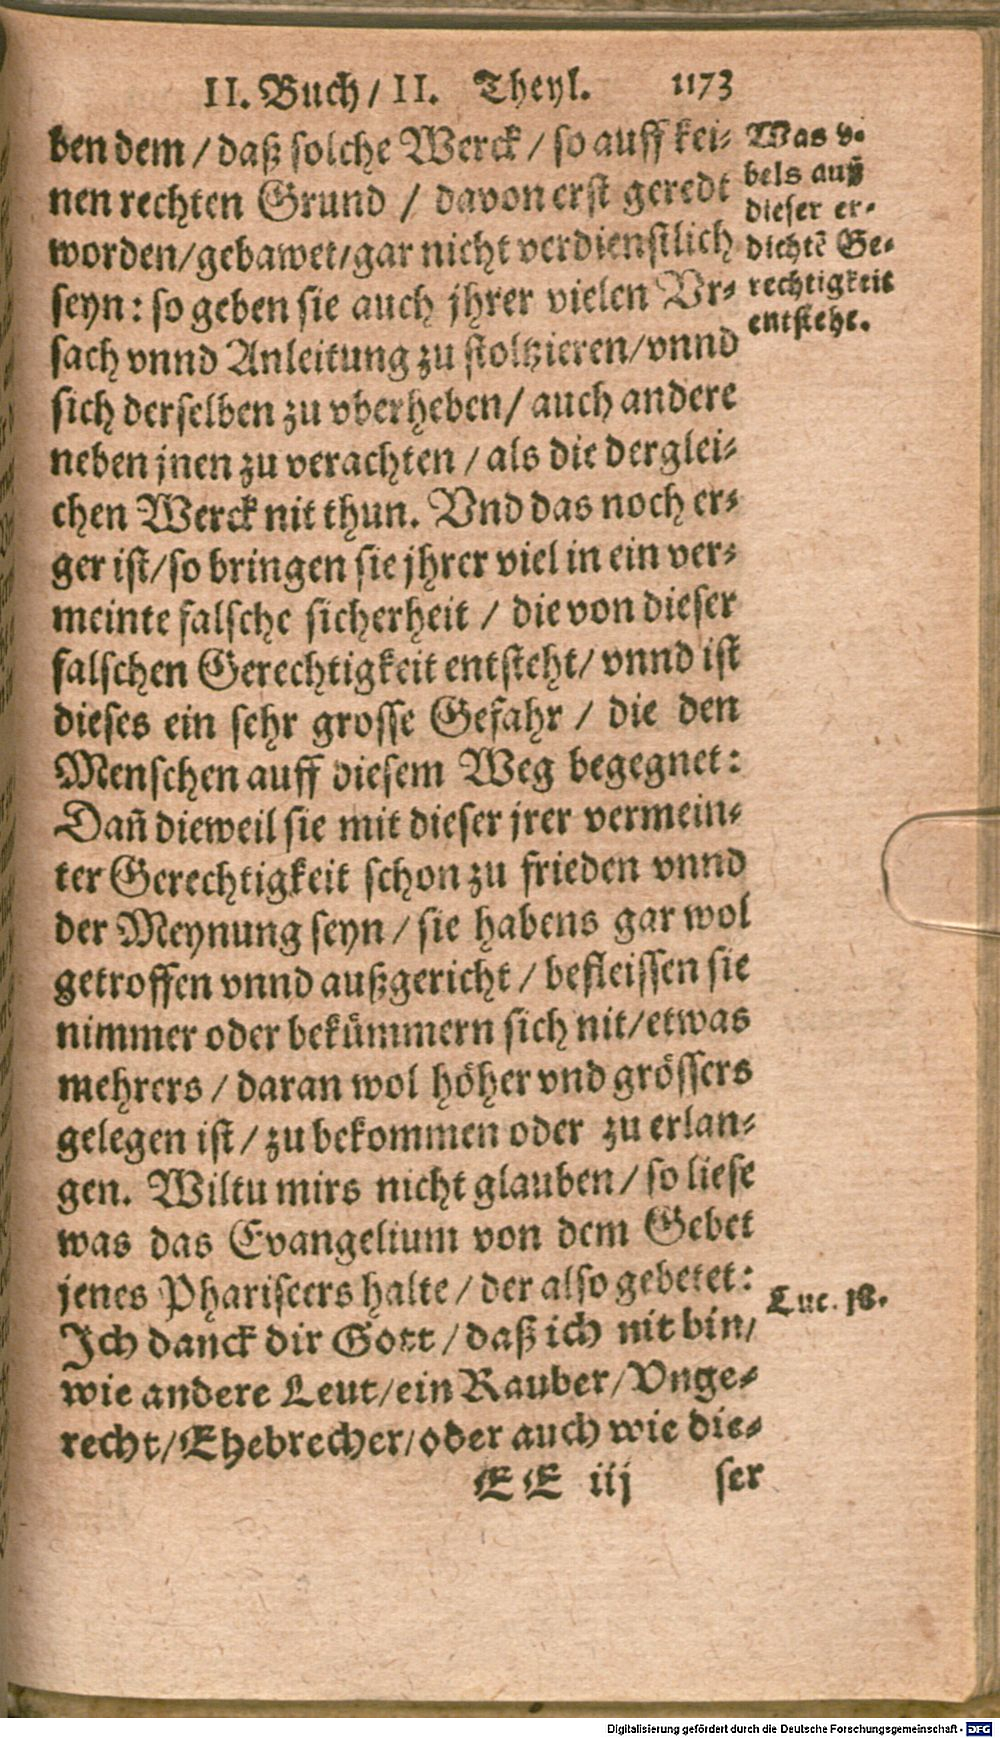 II. Buch/ II. Theyl. 1173
ben dem / daß solche Werck / so auff kei-
nen rechten Grund / davon erst geredt
worden/gebawet/gar nicht verdienstlich
seyn: so geben sie auch jhrer vielen Vr-
sach vnnd Anleitung zu stoltzieren/vnnd
sich derselben zu vberheben/ auch andere
neben jnen zu verachten / als die derglei-
chen Werck nit thun. Vnd das noch er-
ger ist/so bringen sie jhrer viel in ein ver-
meinte falsche sicherheit / die von dieser
falschen Gerechtigkeit entsteht/ vnnd ist
dieses ein sehr grosse Gefahr / die den
Menschen auff diesem Weg begegnet:
Dañ dieweil sie mit dieser jrer vermein-
ter Gerechtigkeit schon zu frieden vnnd
der Meynung seyn / sie habens gar wol
getroffen vnnd außgericht / befleissen sie
nimmer oder bekümmern sich nit/etwas
mehrers / daran wol höher vnd grössers
gelegen ist / zu bekommen oder zu erlan-
gen. Wiltu mirs nicht glauben / so liese
was das Evangelium von dem Gebet
jenes Phariseers halte / der also gebetet:
Ich danck dir Gott / daß ich nit bin/
wie andere Leut/ein Rauber/Vnge-
recht/Ehebrecher/oder auch wie die-
EE iij ser
Was v-
bels auß
dieser er-
dichtẽ Ge-
rechtigkeit
entsteht.
Luc. 18.
Digitalisierung gefördert durch die Deutsche Forschungsgemeinschaft - DFG